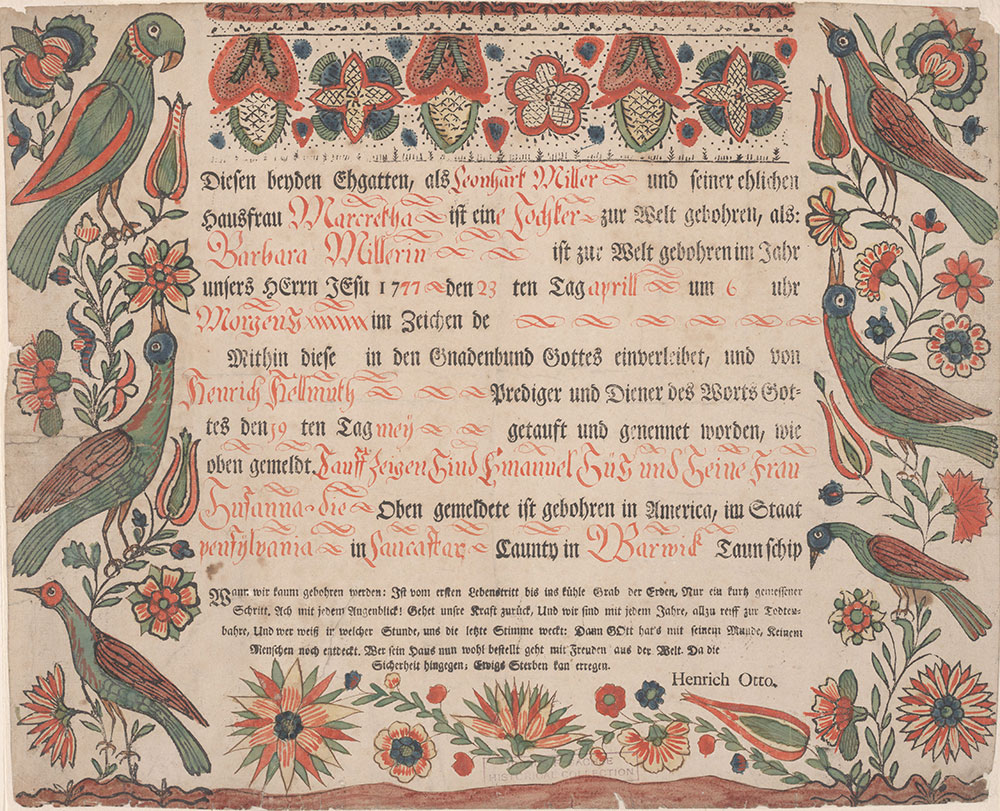 Diesen beyden Ehgatten, als Leonhart Miller und seiner ehlichen
Hausfrau Marcretha ist eine Tochter zur Welt gebohren, als:
Barbara Millerin ist zur Welt gebohren im Jahr
unsers HErrn JEsu 1777 den 23 ten Tag aprill um 6 uhr
Morgens im Zeichen de
Mithin diese in den Gnadenbund Gottes einverleibet, und von
Henrich Hellmuth Prediger und Diener des Worts Got-
tes den 19 ten Tag mey getauft und genennet worden, wie
oben gemeldt. Tauff Zeigen Sind Emanuel Süß und Seine Frau
Susanna die Oben gemeldete ist gebohren in America, im Staat
pensylvania in Lancaster Caunty in Warwick Taunschip
Wann wir kaum gebohren werden: Ist vom ersten Lebenstritt bis ins kühle Grab der Erden, Nur ein kurtz gemessener
Schritt, Ach mit jedem Augenblick! Gehet unsre Kraft zurück, Und wir sind mit jedem Jahre, allzu reiff zur Todten-
bahre, Und wer weiß in welcher Stunde, uns die letzte Stimme weckt: Dann GOtt hat's mit seinem Munde, Keinem
Menschen noch entdeckt. Wer sein Haus nun wohl bestellt geht mit Freuden aus der Welt. Da die
Sicherheit hingegen; Ewigs Sterben kan erregen.
Henrich Otto.
HISTORICAL COLLECTION